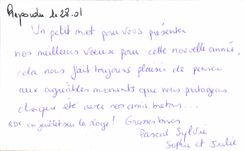 Répondu le 28.01
Un petit mot pour vous présenter
nos meilleurs voeux pour cette nouvelle année,
cela nous fait toujours plaisir de penser
aux agréables moments que nous partageons
chaque été avec nos amis bretons...
RDV en juillet sur la plage! Grosses bises
Pascal Sylvie
Sophie et Julie